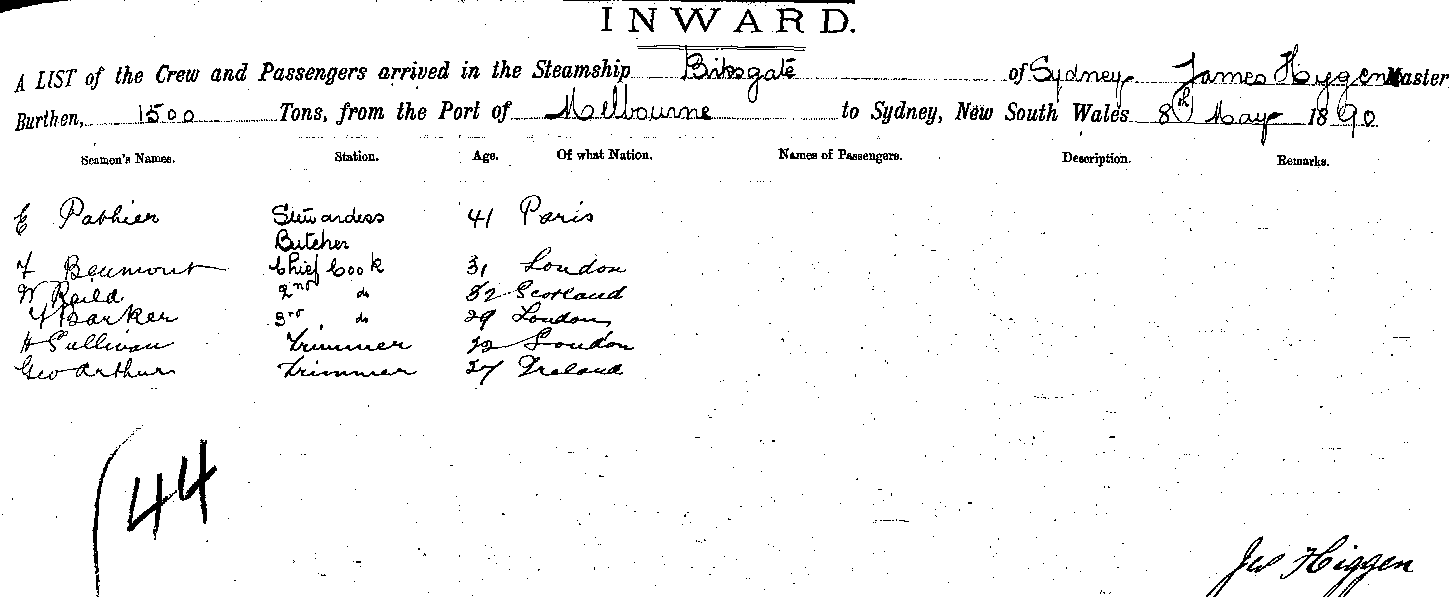 INWARD.
A LIST of the Crew and Passengers arrived in the Steamship Birksgate of Sydney James Higgen Master
Burthen, 1500 Tons, from the Port of Melbourne to Sydney, New South Wales 8th May 1890
Seamen's Names. Station. Age. Of what Nation. Names of Passengers. Description. Remarks.
E Stewardess 41 Paris
Butcher
F Beumont Chief Cook 31 London
W Reild 2nd do 32 Scotland
Barker 3rd do 29 London
H Sullivan Trimmer London
Geo Arthur Trimmer 27 Ireland
44
Jas Higgen